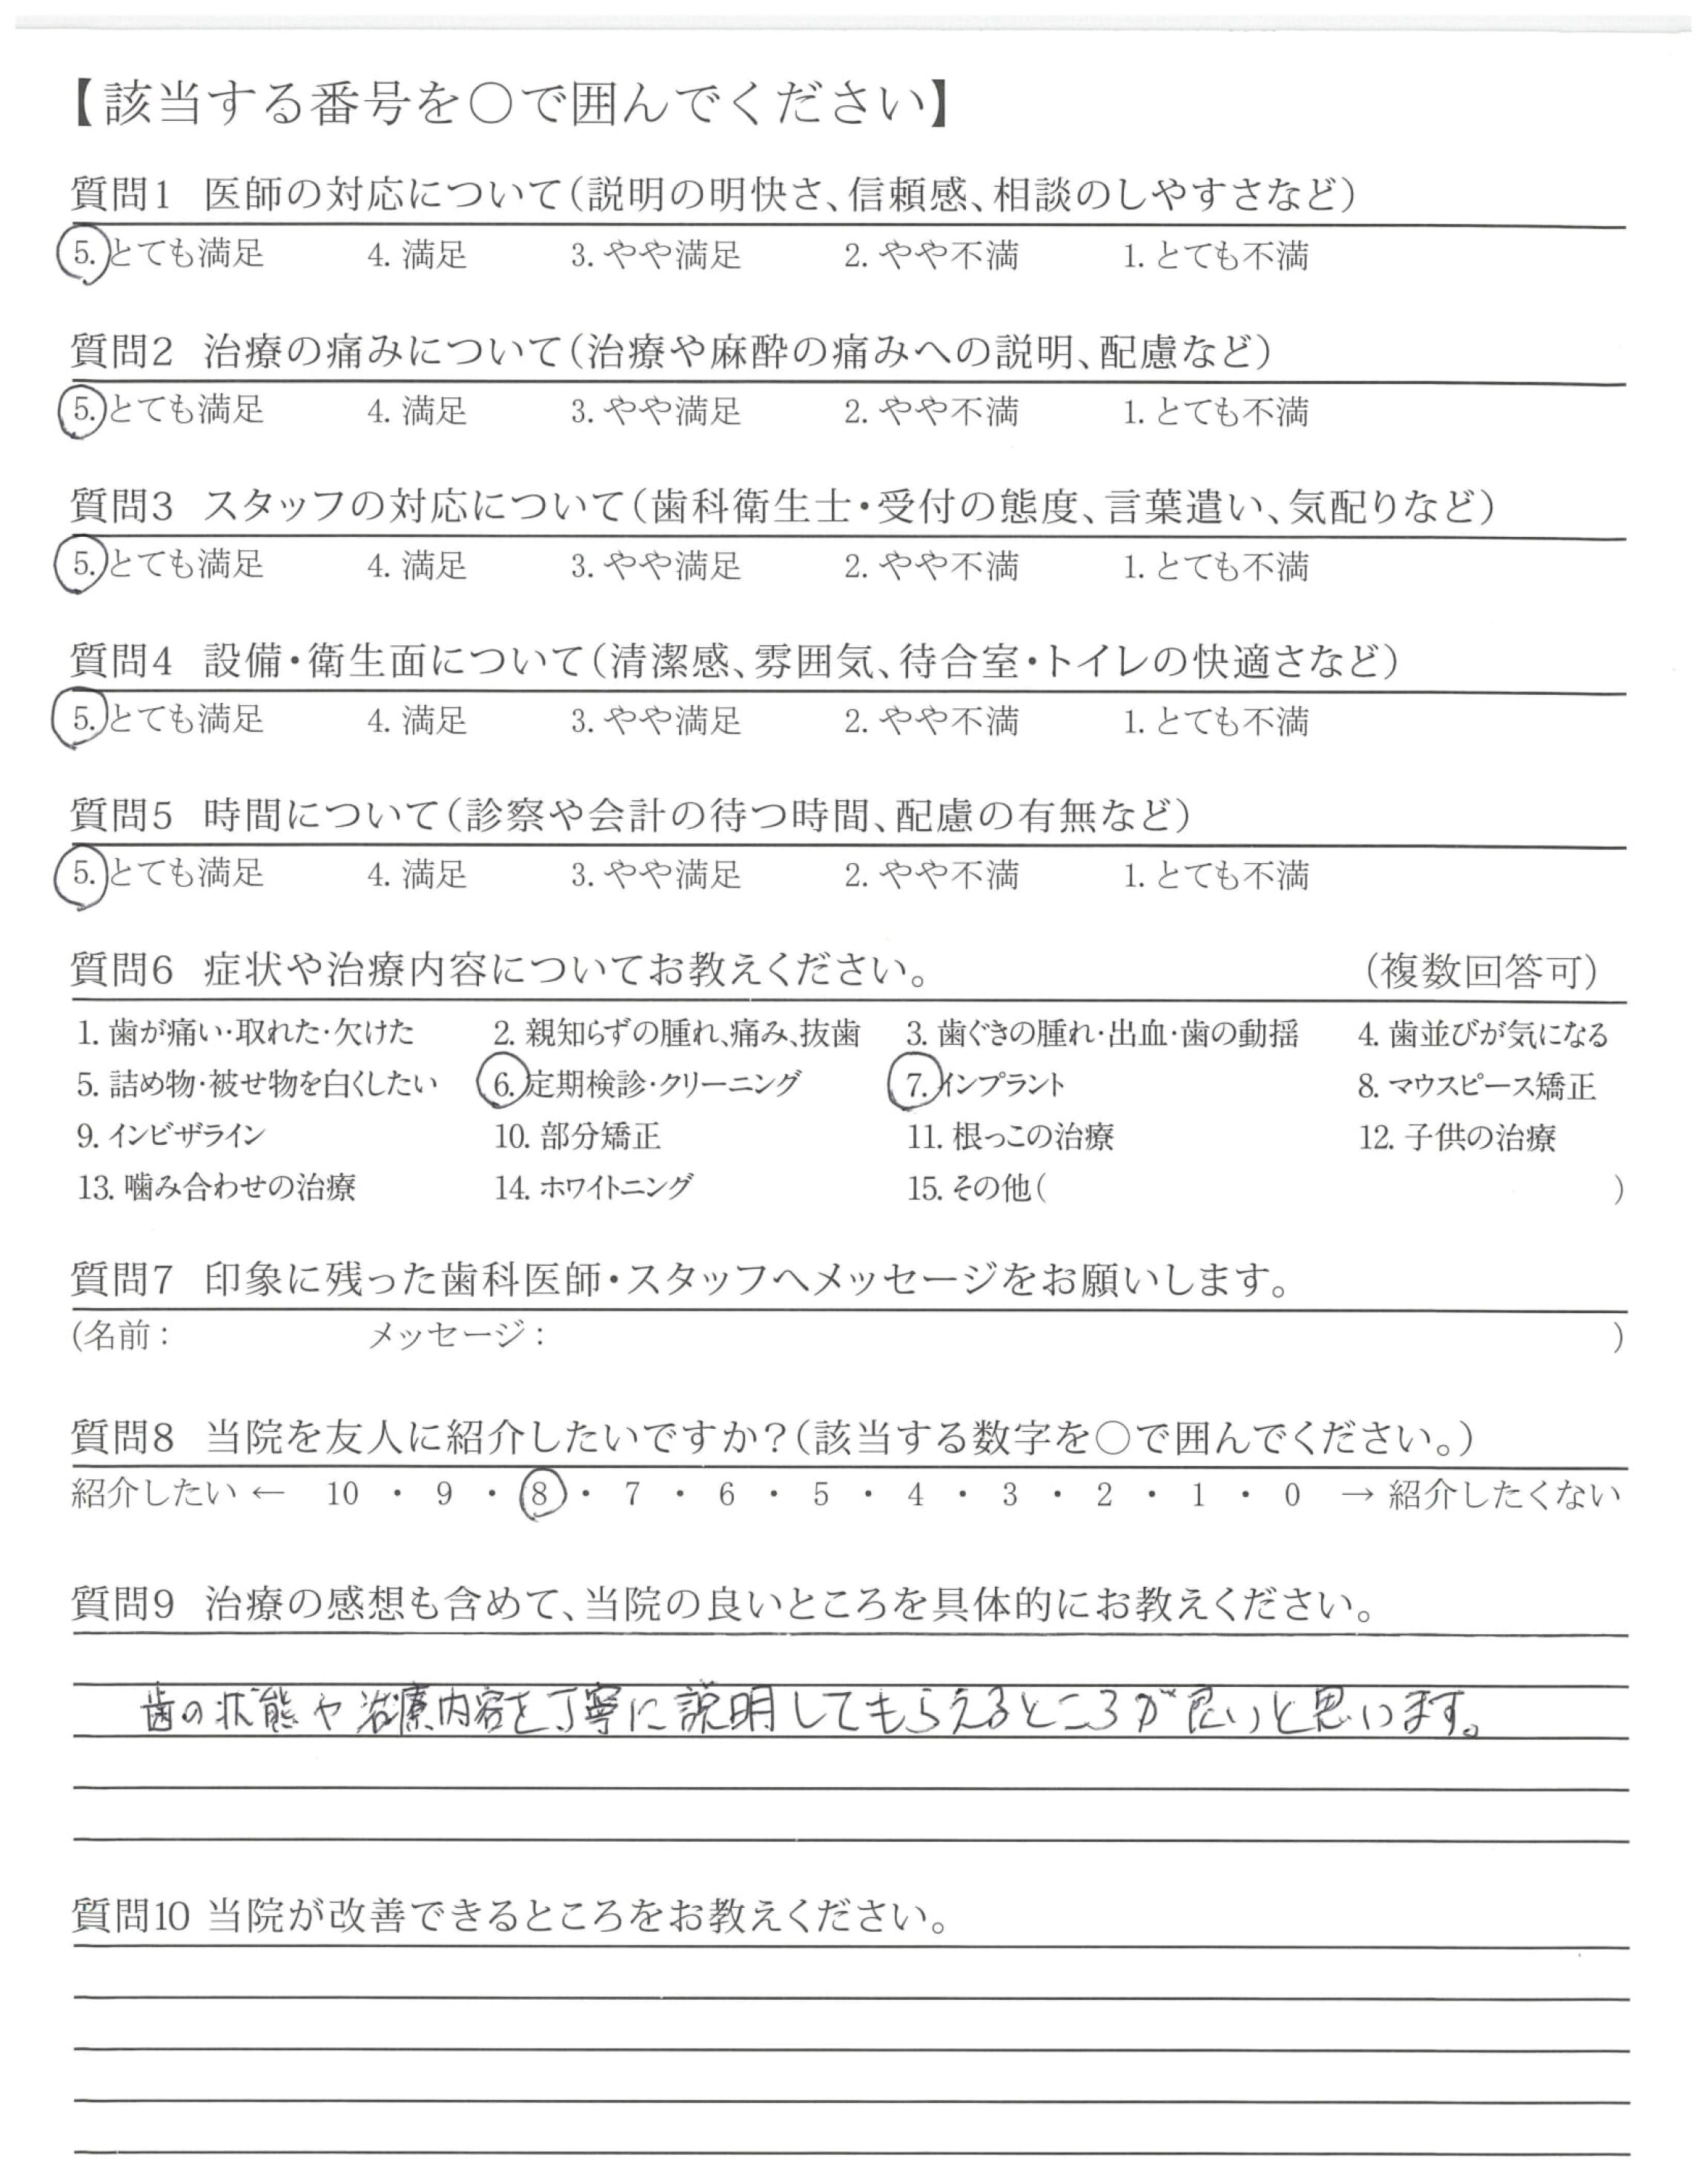 【該当する番号を○で囲んでください】
質問1 医師の対応について(説明の明快さ、信頼感、相談のしやすさなど)
5. とても満足 4. 満足 3. やや満足 2. やや不満 1. とても不満
質問2 治療の痛みについて(治療や麻酔の痛みへの説明、配慮など)
5. とても満足 4. 満足 3. やや満足 2. やや不満 1. とても不満
質問3 スタッフの対応について(歯科衛生士・受付の態度、言葉遣い、気配りなど)
5. とても満足 4. 満足 3. やや満足 2. やや不満 1. とても不満
質問4 設備・衛生面について(清潔感、雰囲気、待合室・トイレの快適さなど)
5. とても満足 4. 満足 3. やや満足 2. やや不満 1. とても不満
質問5 時間について(診察や会計の待つ時間、配慮の有無など)
5. とても満足 4. 満足 3. やや満足 2. やや不満 1. とても不満
質問6 症状や治療内容についてお教えください。 (複数回答可)
1. 歯が痛い・取れた・欠けた 2. 親知らずの腫れ、痛み、抜歯 3. 歯ぐきの腫れ・出血・歯の動揺 4. 歯並びが気になる
5. 詰め物・被せ物を白くしたい 6. 定期検診・クリーニング 7. インプラント 8. マウスピース矯正
9. インビザライン 10. 部分矯正 11. 根っこの治療 12. 子供の治療
13. 噛み合わせの治療 14. ホワイトニング 15. その他( )
質問7 印象に残った歯科医師・スタッフへメッセージをお願いします。
(名前: メッセージ: )
質問8 当院を友人に紹介したいですか?(該当する数字を○で囲んでください。)
紹介したい ← 10 ・ 9 ・ 8 ・ 7 ・ 6 ・ 5 ・ 4 ・ 3 ・ 2 ・ 1 ・ 0 → 紹介したくない
質問9 治療の感想も含めて、当院の良いところを具体的にお教えください。
歯の状態や治療内容を丁寧に説明してもらえるところが良いと思います。
質問10 当院が改善できるところをお教えください。